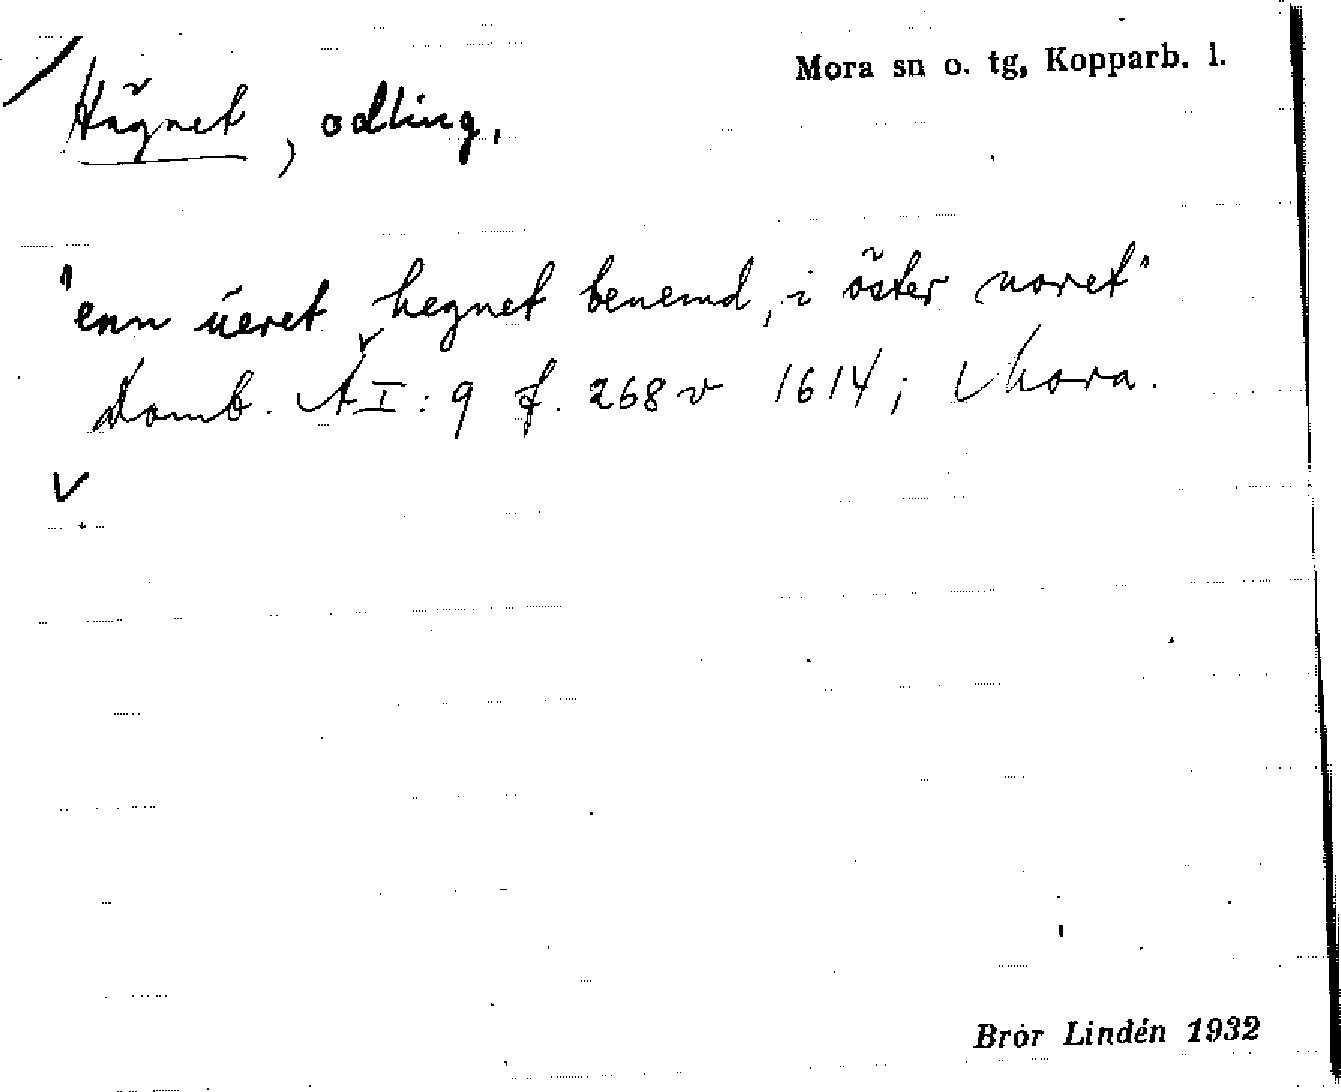 Mora sn o. tg, Kopparb. l.
Hägnet, odling,
"enn üeret hegnet benemd, i öster noret"
Domb. A I: 9 f. 268 v 1614; Mora.
Bror Lindén 1932